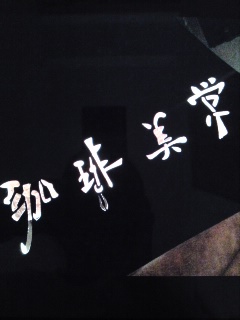 珈琲美学